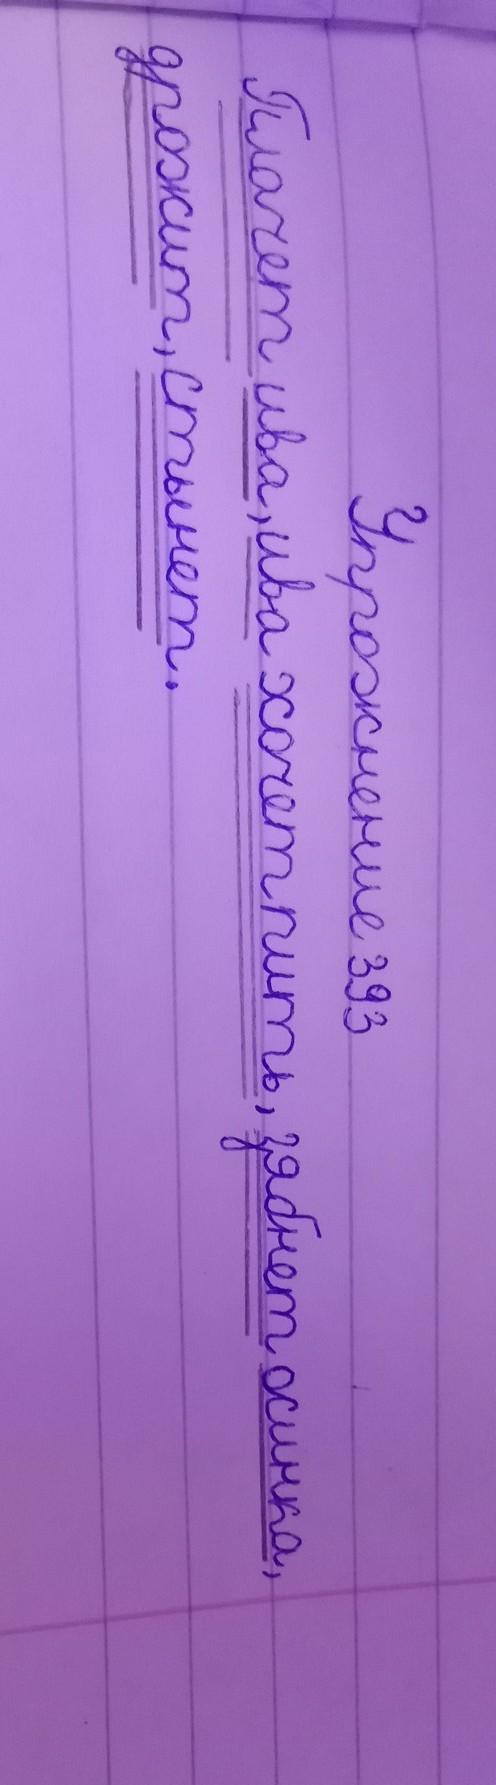 Упрожнение 393
Плачет ива, ива хочет пить, зябнет осинка,
дрожит, стынет.